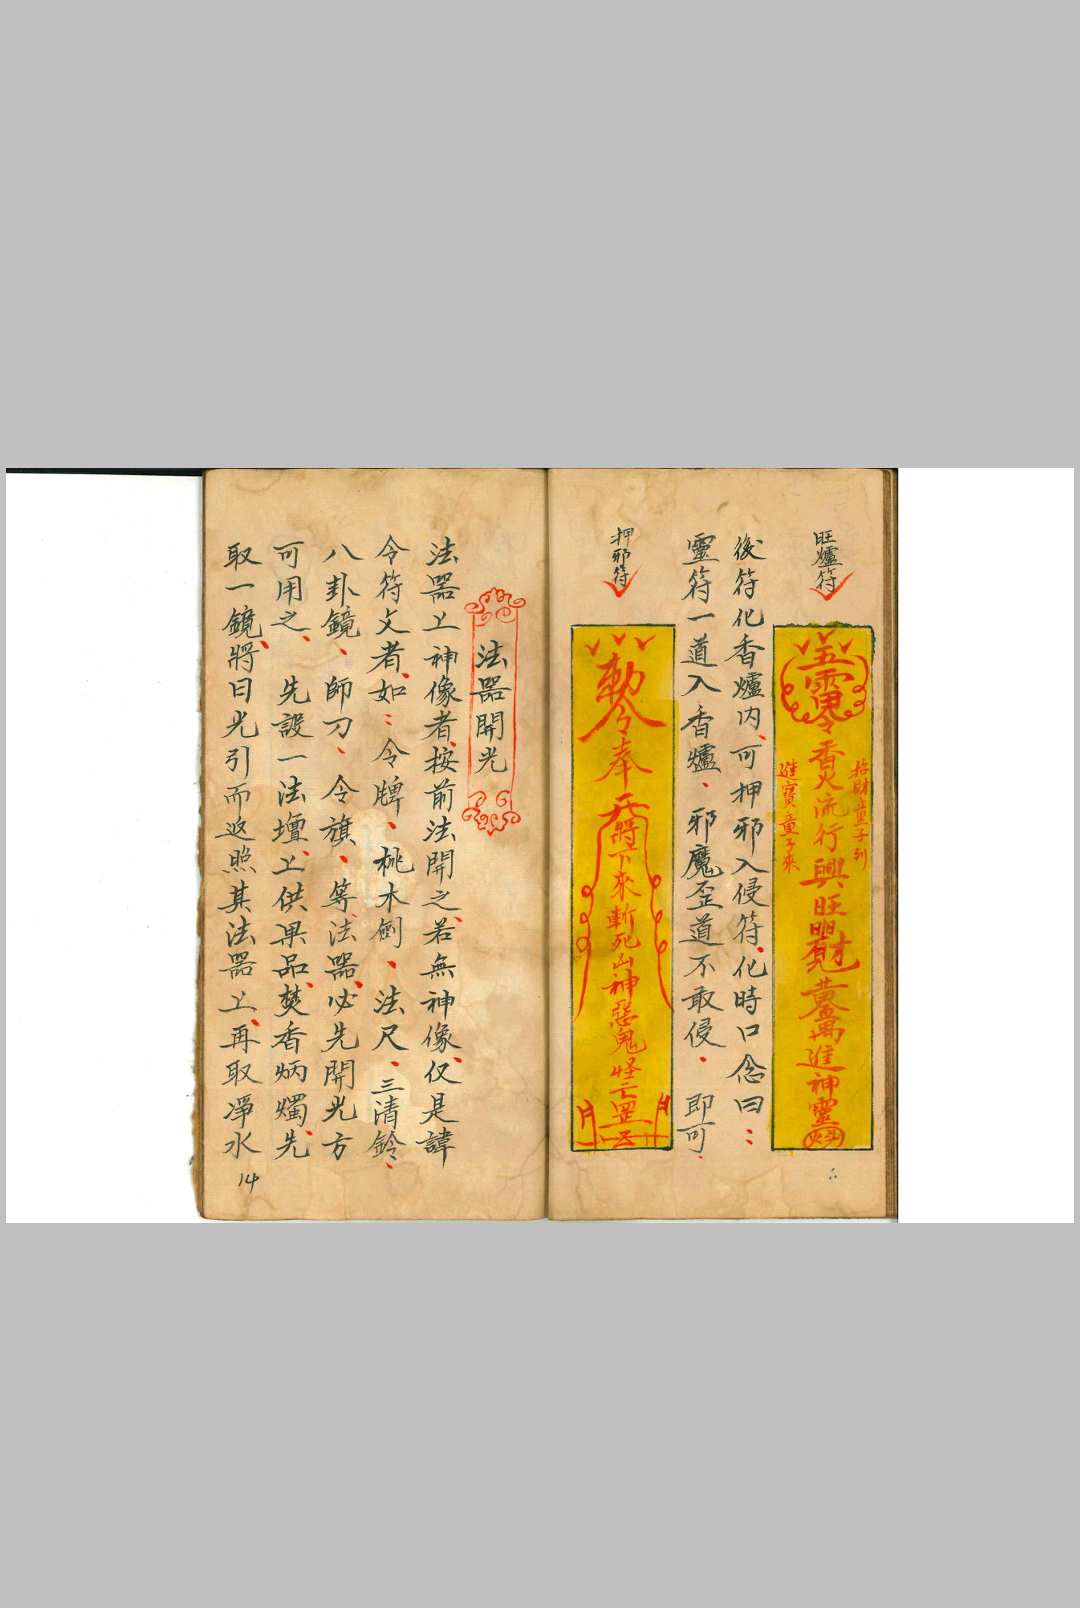 旺爐符
五雷令香火流行興旺
招財童子到
進寶童子來
進神靈
後符化香爐内、可押邪入侵符、化時口念曰：
靈符一道入香爐、邪魔歪道不敢侵、即可、
押邪符
敕令奉天將下來斬死山神惡鬼怪亡罡
法器開光
法器上神像者、按前法開之、若無神像、仅是諱
令符文者、如：令牌、桃木劍、法尺、三清鈴、
八卦鏡、師刀、令旗、等法器、必先開光方
可用之、先設一法壇、上供果品、焚香炳燭、先
取一鏡、將日光引而返照其法器上、再取凈水
14